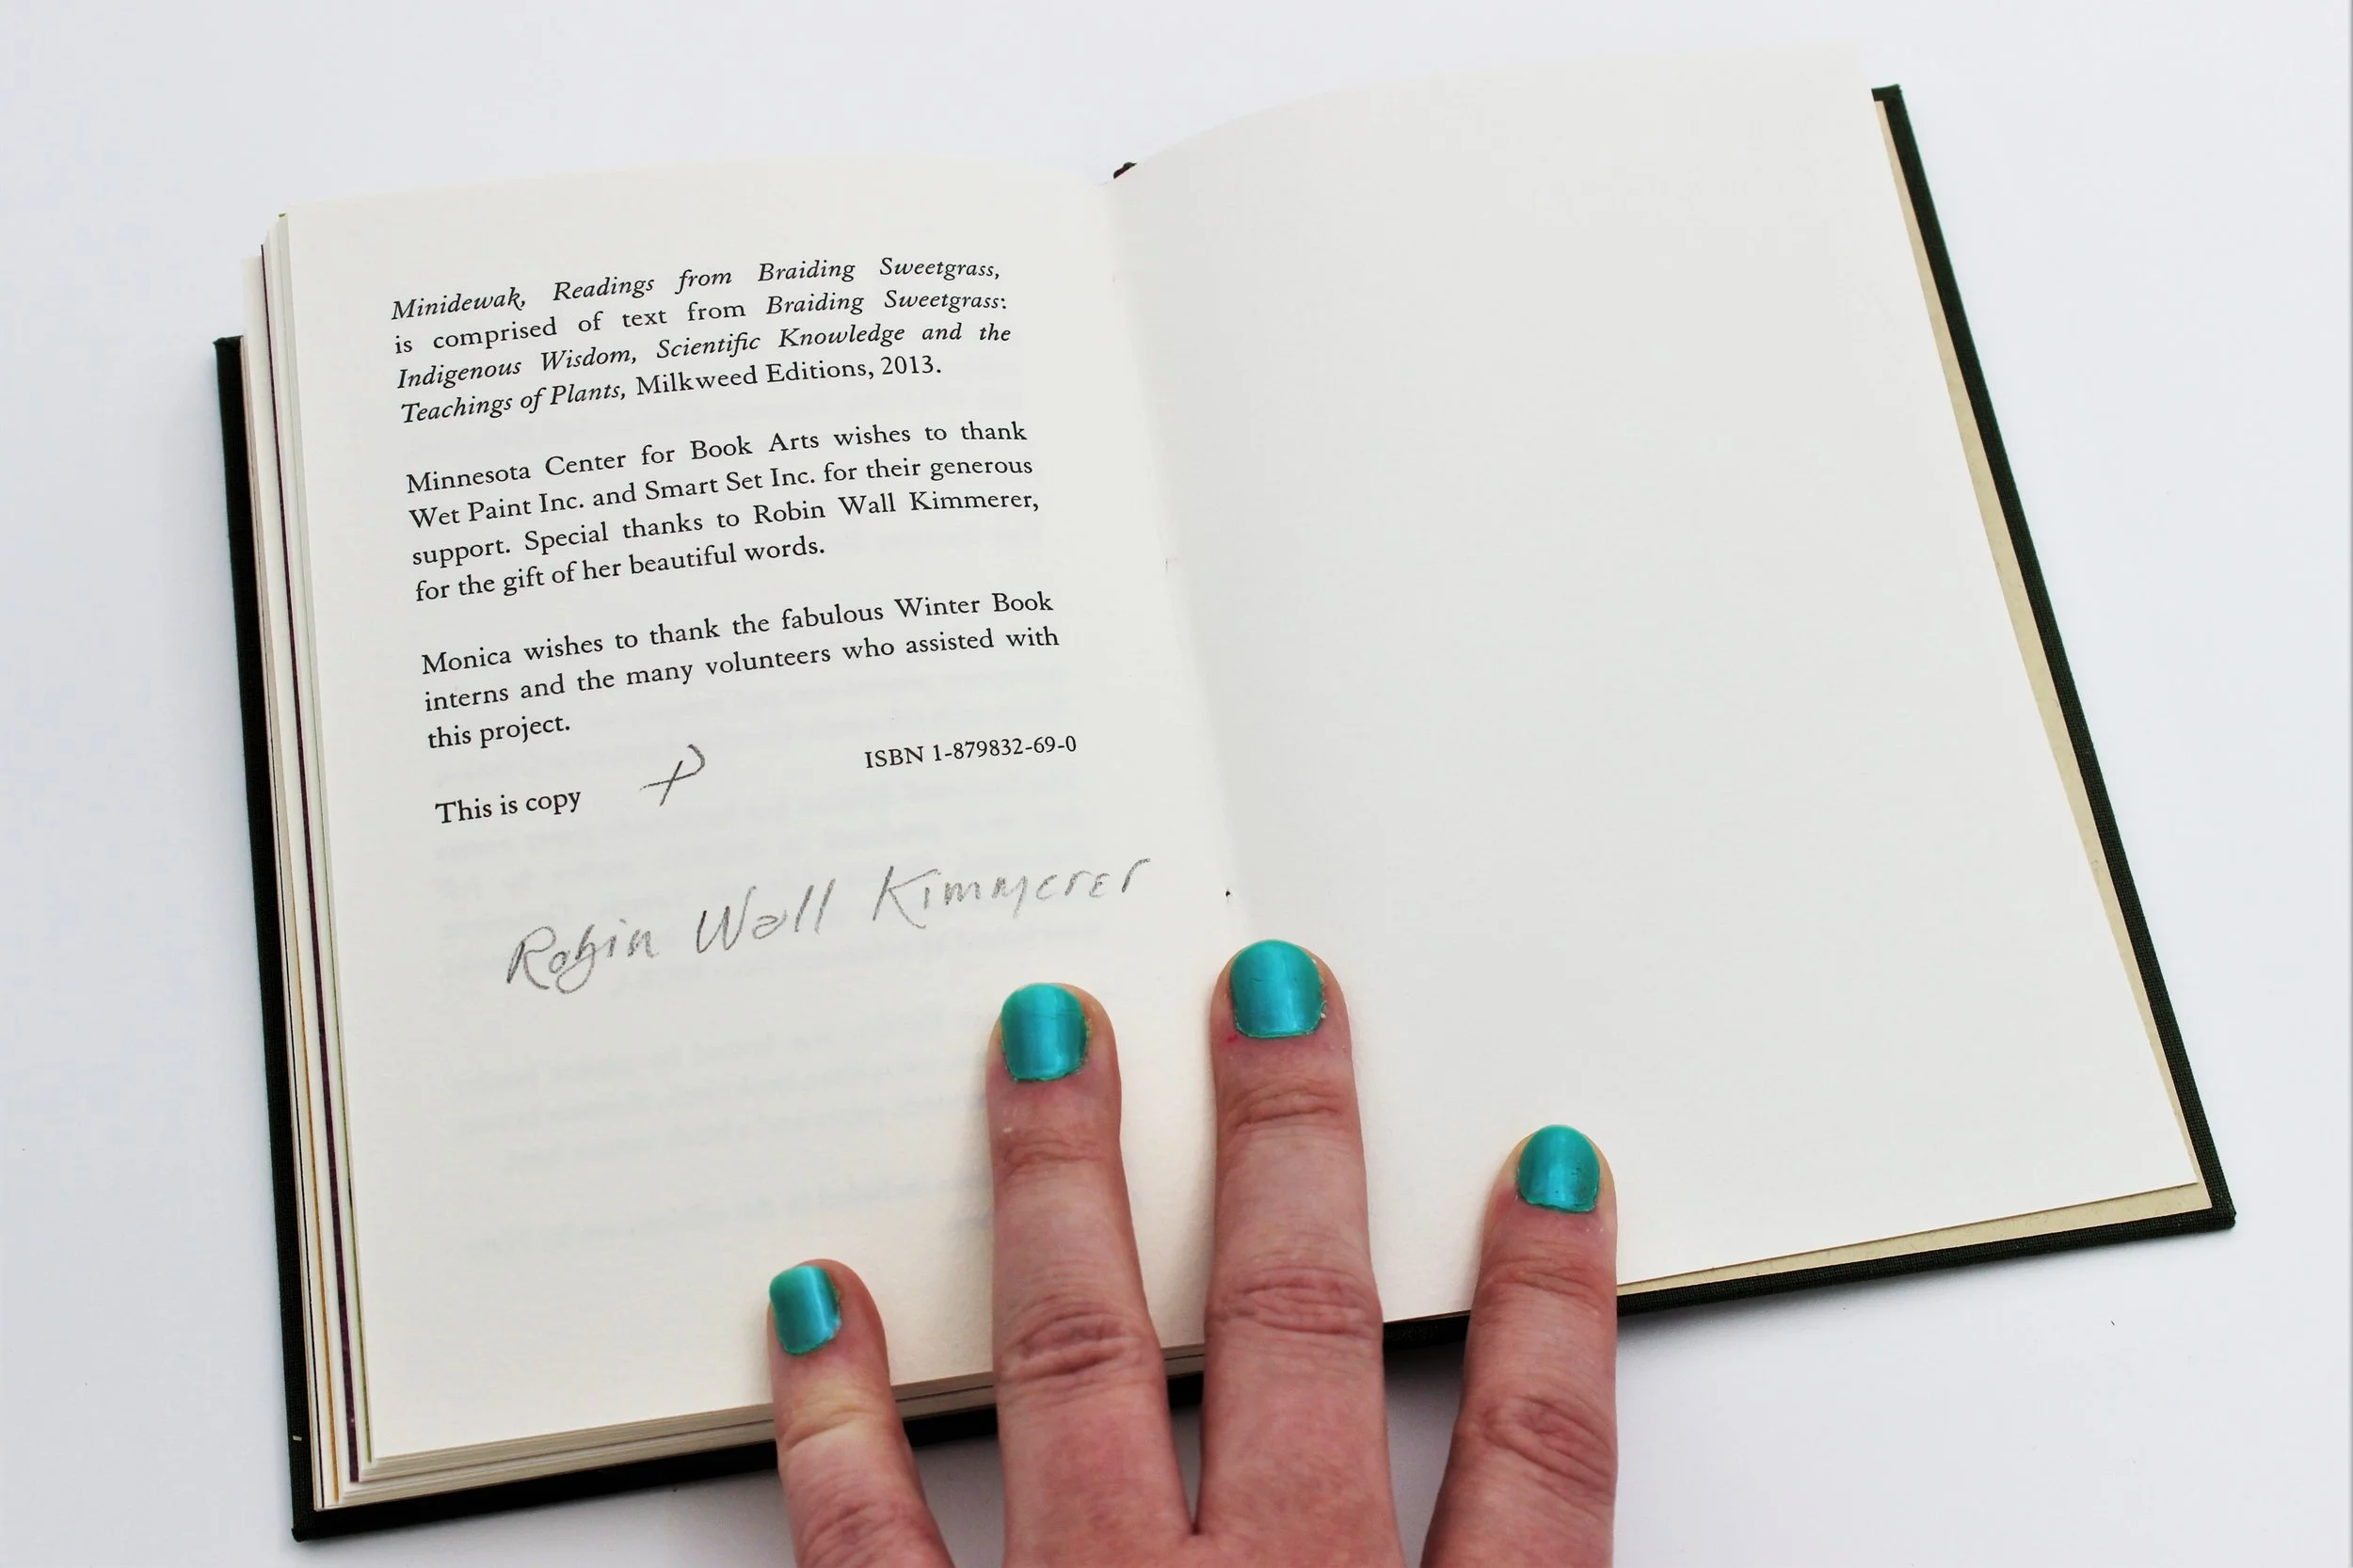 Minidewak, Readings from Braiding Sweetgrass,
is comprised of text from Braiding Sweetgrass:
Indigenous Wisdom, Scientific Knowledge and the
Teachings of Plants, Milkweed Editions, 2013.
Minnesota Center for Book Arts wishes to thank
Wet Paint Inc. and Smart Set Inc. for their generous
support. Special thanks to Robin Wall Kimmerer,
for the gift of her beautiful words.
Monica wishes to thank the fabulous Winter Book
interns and the many volunteers who assisted with
this project.
ISBN 1-879832-69-0
This is copy
Robin Wall Kimmerer